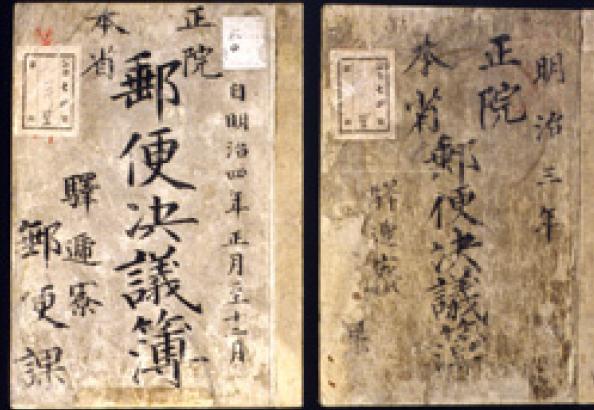 明治三年
正院
本省
郵便决議簿
驛逓寮
自明治四年正月至十二月
正院
本省
郵便决議簿
驛逓寮
郵便課